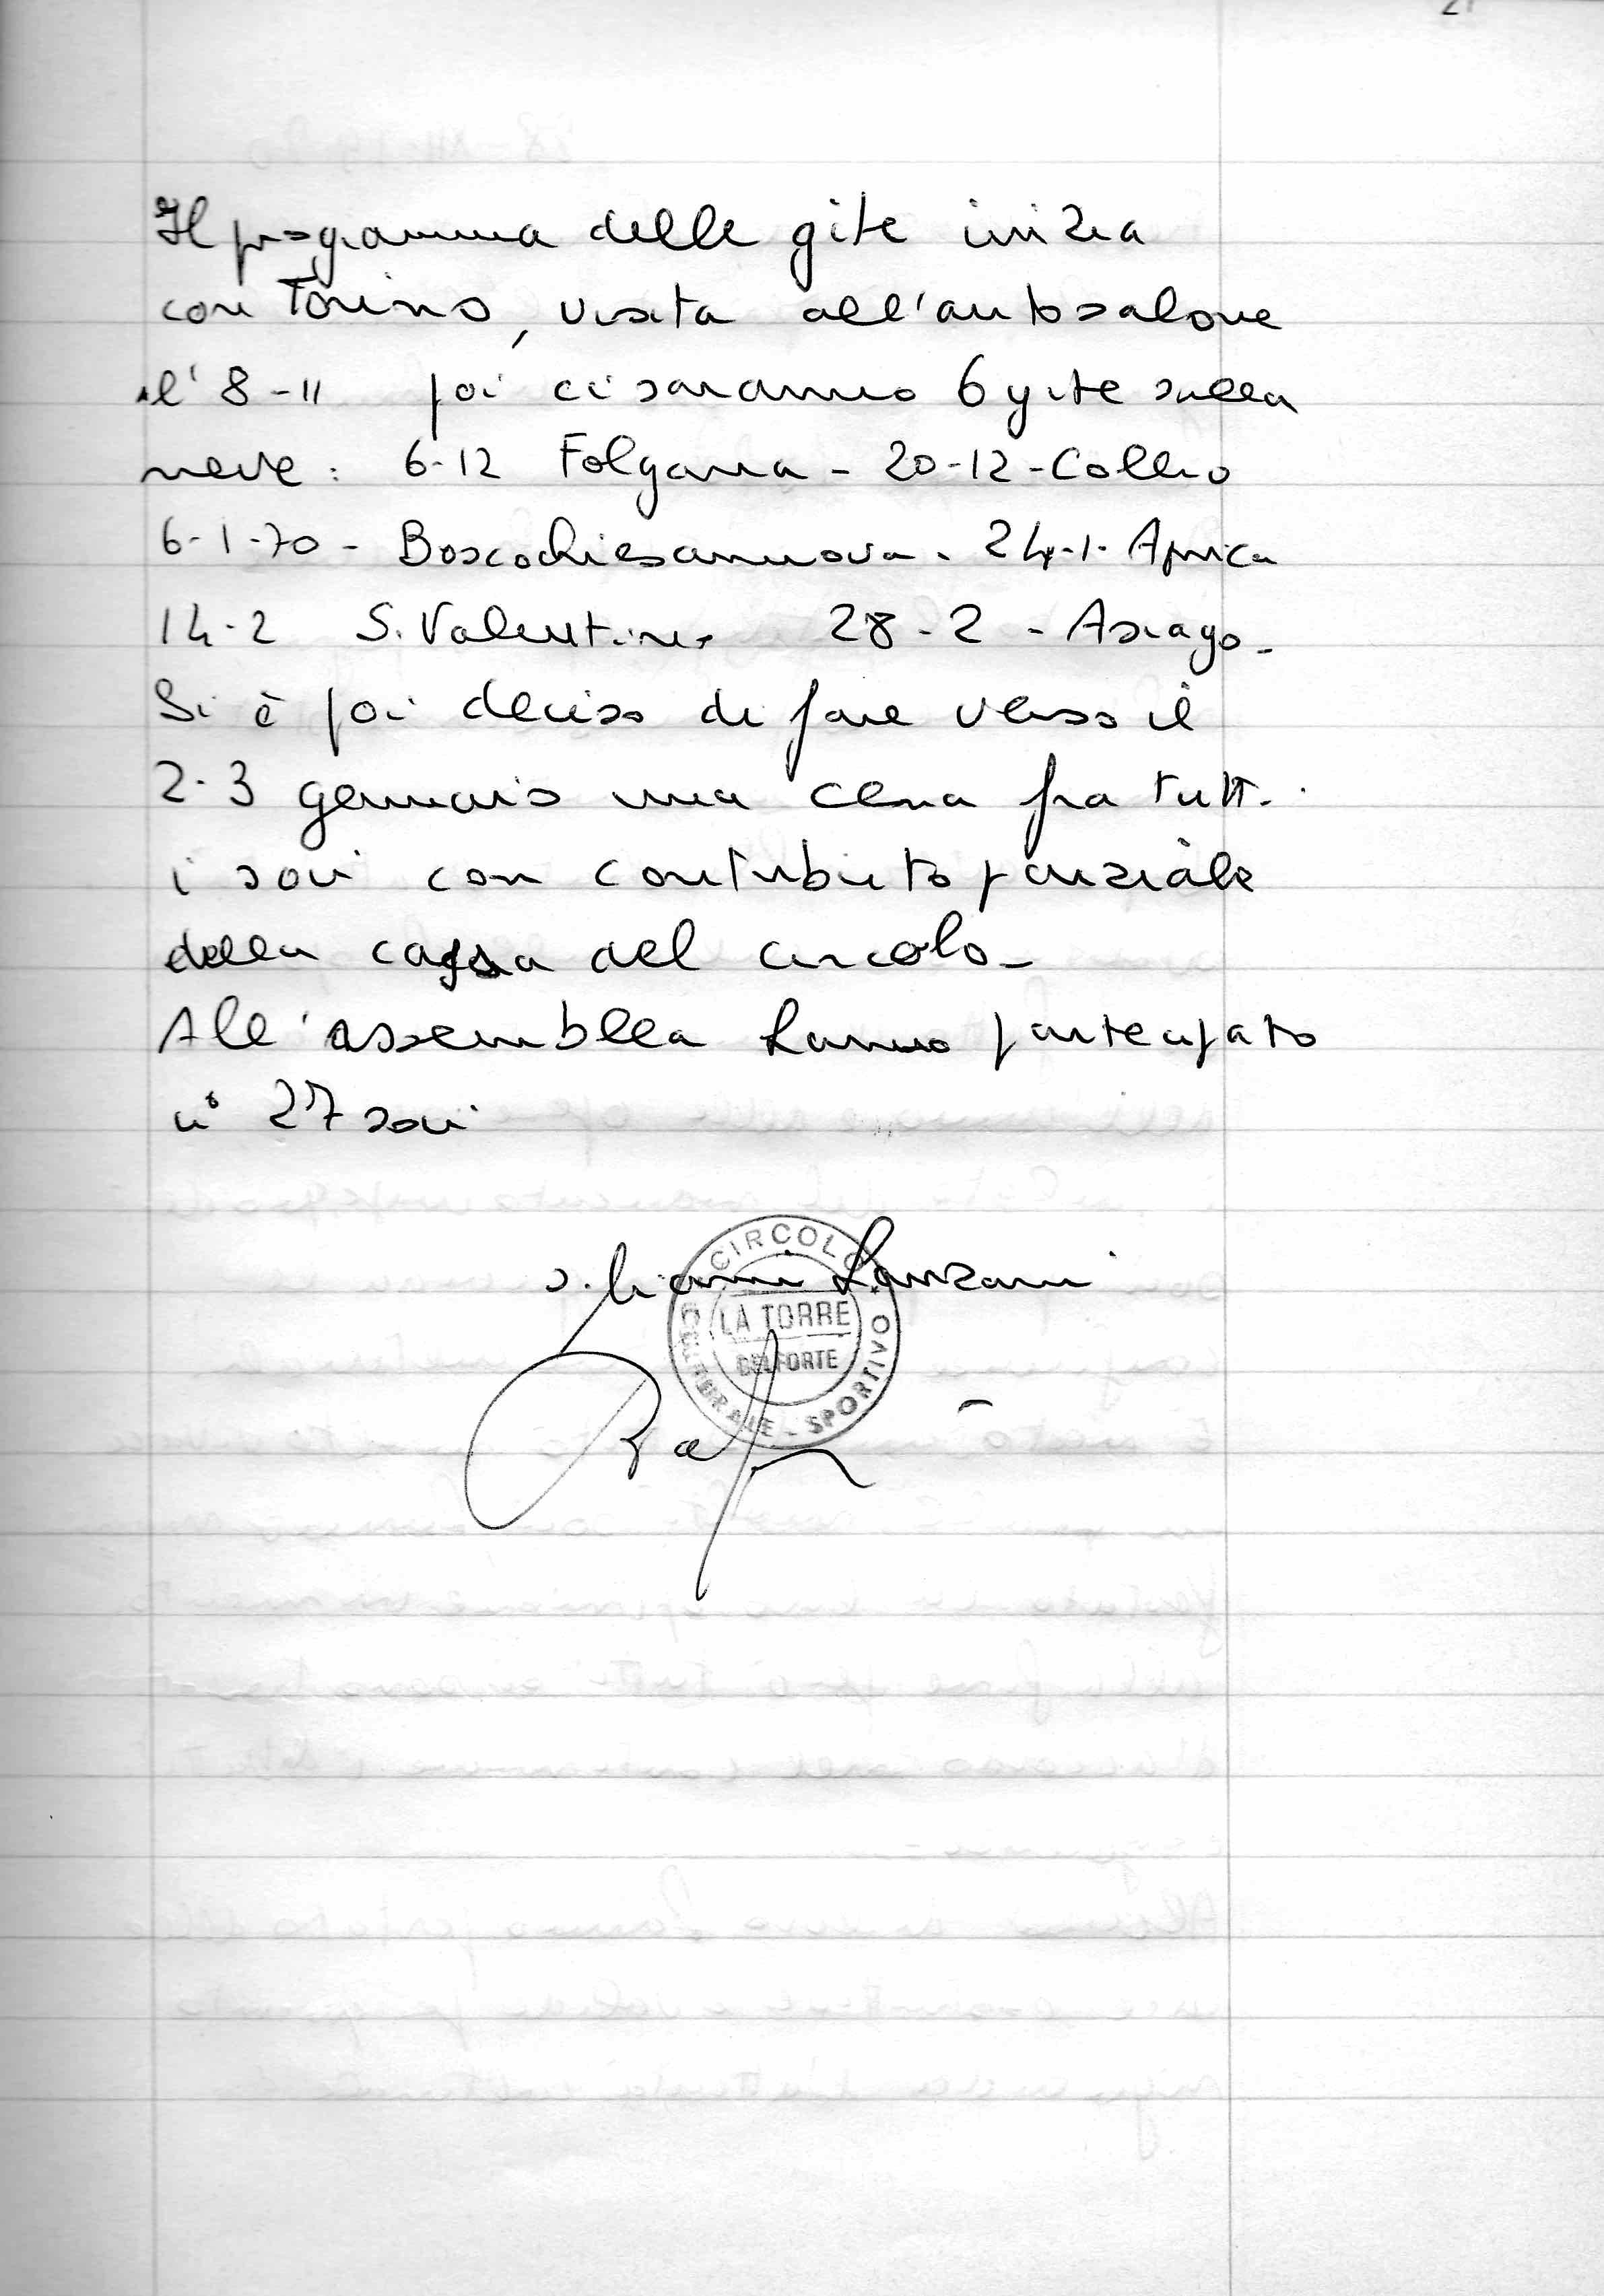 21
Il programma delle gite inizia
con Torino, visita all'autosalone
l'8-11 poi ci saranno 6 gite sulla
neve: 6-12 Folgaria - 20-12 - Collio
6-1-70 - Boscochiesanuova - 24-1- Aprica
14-2 S. Valentino 28-2 - Asiago -
Si è poi deciso di fare verso il
2-3 gennaio una cena fra tutti
i soci con contributo parziale
della cassa del circolo -
All'assemblea hanno partecipato
n° 27 soci
Gianni Lanzani
CIRCOLO
LA TORRE
BELFORTE
CULTURALE - SPORTIVO